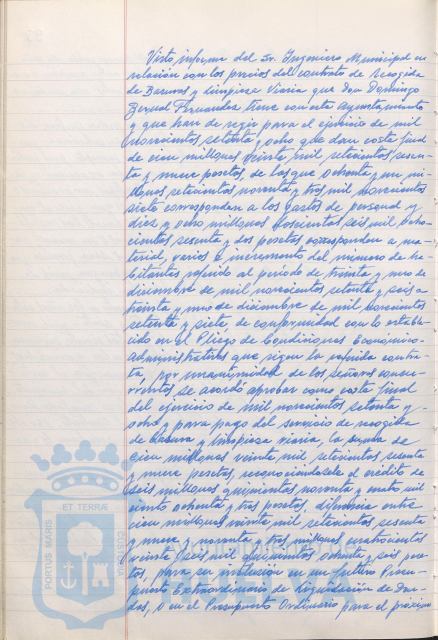 Visto informe del Sr. Ingeniero Municipal en
relación con los precios del contrato de Recogida
de Basuras y Limpieza Viaria que Don Domingo
Bernal Fernandez tiene con este Ayuntamiento
y que han de regir para el ejercicio de mil
novecientos setenta y ocho que dan coste final
de cien millones veinte mil setecientos sesen-
ta y nueve pesetas, de las que ochenta y un mi-
llones setecientos noventa y tres mil novecientas
siete corresponden a los gastos de personal y
diez y ocho millones doscientas seis mil ocho-
cientas sesenta y dos pesetas corresponden a ma-
terial, varios e incremento del número de ha-
bitantes referido al período de treinta y uno de
diciembre de mil novecientos setenta y seis a
treinta y uno de diciembre de mil novecientos
setenta y siete de conformidad con lo estable-
cido en el Pliego de Condiciones Económico-
administrativas que rigen la referida contra-
ta, por unanimidad de los señores concu-
rrentes se acordó aprobar como coste final
del ejercicio de mil novecientos setenta y
ocho para pago del servicio de recogida
de basura y limpieza viaria, la suma de
cien millones veinte mil setecientas sesenta
y nueve pesetas, reconociéndosele el crédito de
seis millones quinientas noventa y cuatro mil
ciento ochenta y tres pesetas, diferencia entre
cien millones veinte mil setecientas sesenta
y nueve y noventa y tres millones cuatrocientas
veinte y seis mil quinientas ochenta y seis pese-
tas, para su inclusión en un futuro Presu-
puesto Extraordinario de Liquidación de Deu-
das, o en el Presupuesto Ordinario para el próximo
ET TERRÆ
PORTUS MARIS
CUSTODIA